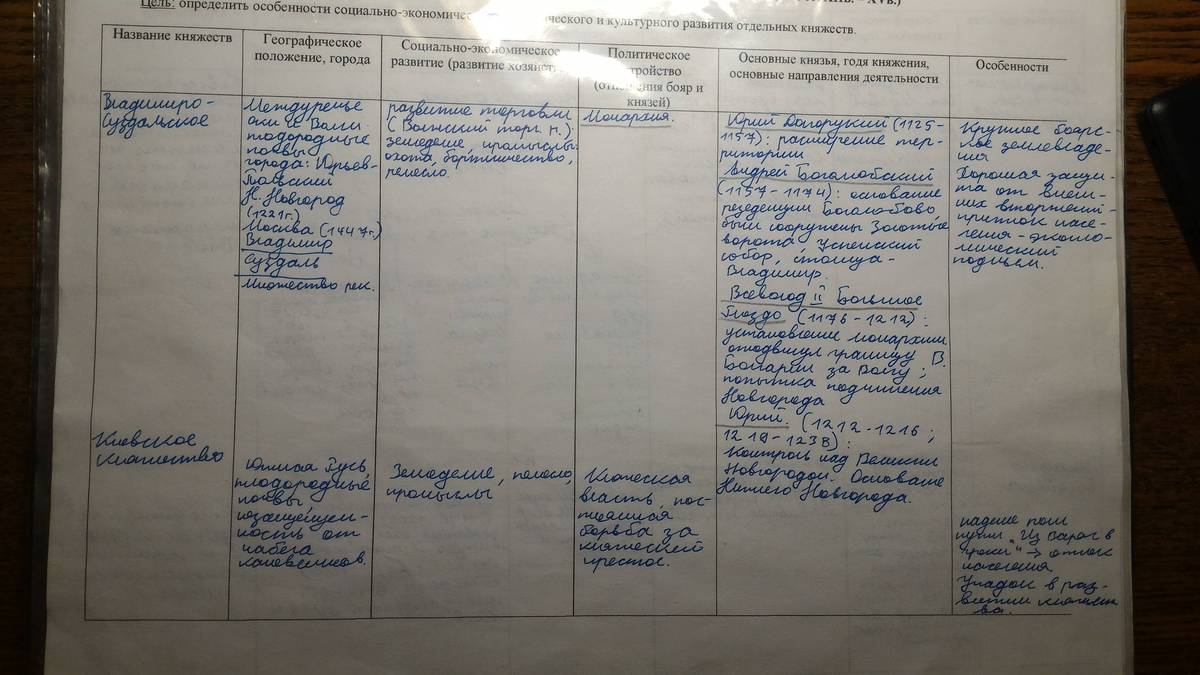 – XVв.)
Цель: определить особенности социально-экономичес ического и культурного развития отдельных княжеств.
Название княжеств
Географическое
положение, города
Социально-экономическое
развитие (развитие хозяйст
Политическое
тройство
(отн ения бояр и
князей)
Основные князья, годя княжения,
основные направления деятельности
Особенности
Владимиро-
Суздальское
Междуречье
Оки и Волги
плодородные
почвы
города: Юрьев-
Польский
Н. Новгород
(1221г.)
Москва (1147г.)
Владимир
Суздаль
Множество рек.
развитие торговли
(Волжский торг. п.)
земледелие, промыслы:
охота, бортничество,
ремесло.
Монархия.
Юрий Долгорукий (1125-
1157): расширение тер-
ритории
Андрей Боголюбский
(1157-1174): основание
резеденции Боголюбово,
были сооружены Золотые
ворота, Успенский
собор, столица-
Владимир.
Всеволод II Большое
Гнездо (1176-1212):
установление монархии
отодвинул границу В.
Болгарии за Волгу;
попытка подчинения
Новгорода
Юрий. (1212-1216;
1218-1238):
Контроль над Великим
Новгородом. Основание
Нижнего Новгорода.
Крупное боярс-
кое землевладе-
ния
Хорошая защи-
та от внеш-
них вторжений-
приток насе-
ления - эконо-
мический
подъем.
Киевское
княжество
Южная Русь,
плодородные
почвы,
незащищен-
ность от
набега
кочевников.
Земледелие, ремесло,
промыслы
Княжеская
власть, пос-
тоянная
борьба за
княжеский
престол.
падение пол
пути "Из варяг в
греки" → отток
населения
Упадок в раз-
витии княжест-
ва.